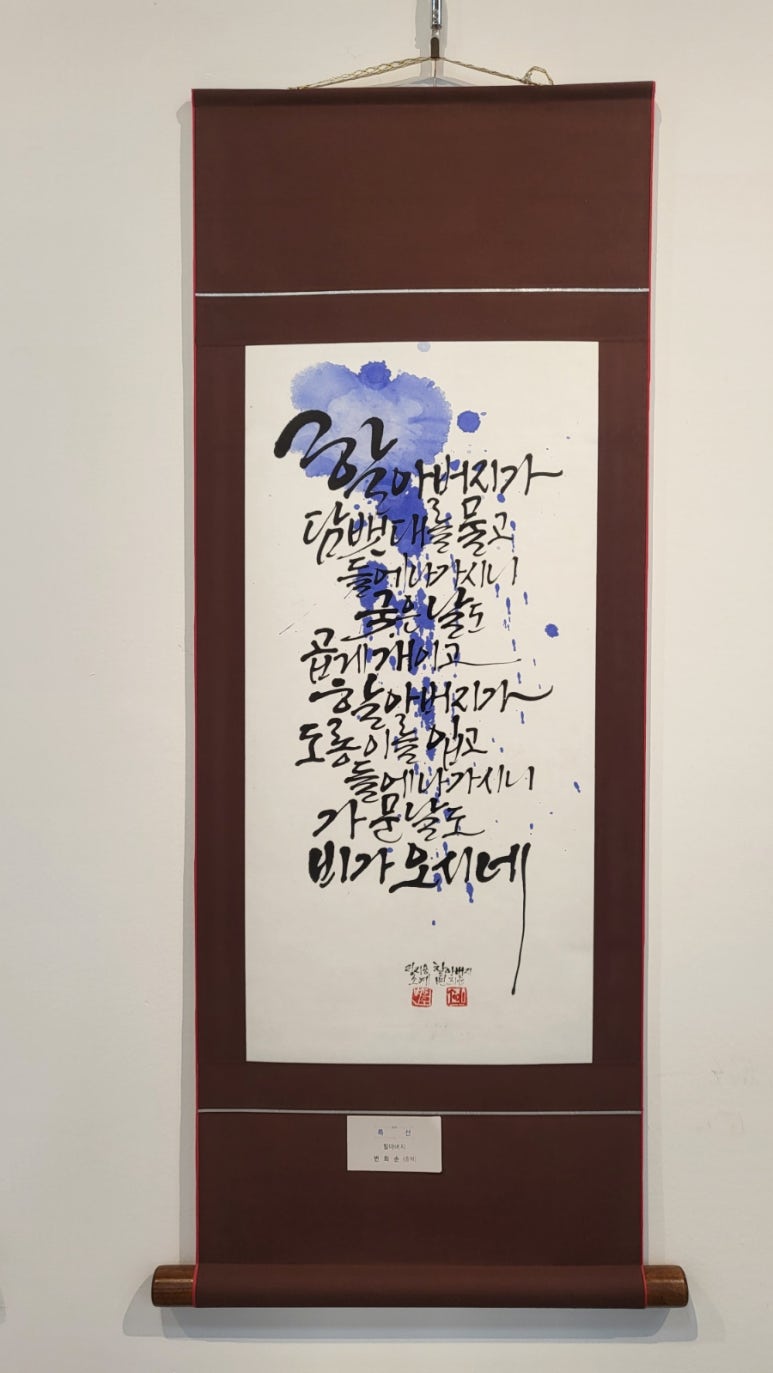 할아버지가
담뱃대를 물고
들에 나가시니
궂은 날도
곱게 개이고
할아버지가
도롱이를 입고
들에 나가시니
가문 날도
비가 오시네
정지용 할아버지
특 선
할아버지
변 희 순